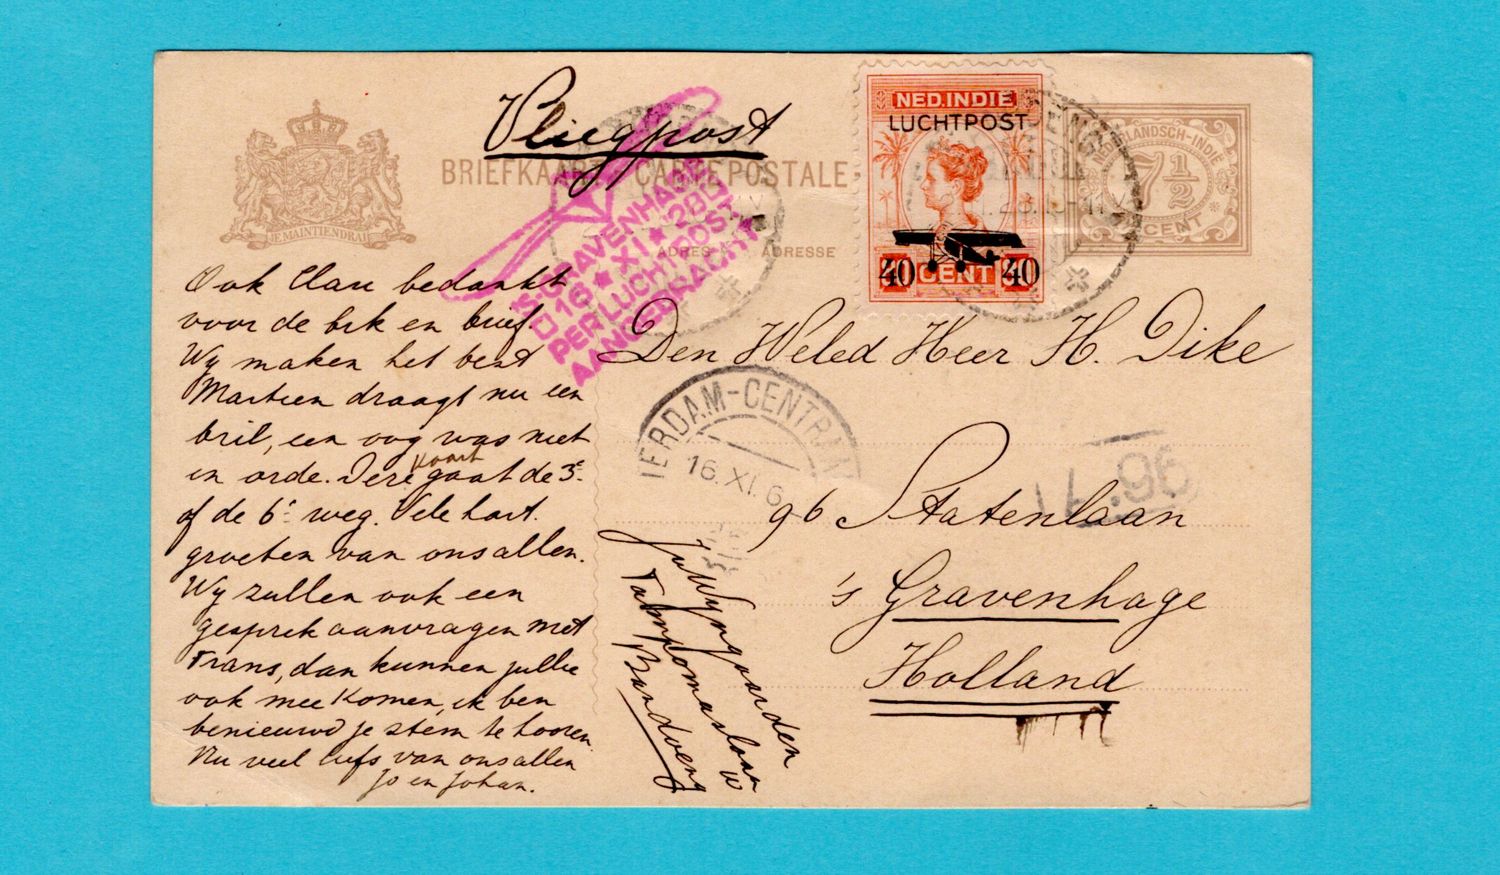 Vliegpost
BRIEFKAART CARTE POSTALE
JE MAINTIENDRAI
ADRES ADRESSE
NED. INDIE
LUCHTPOST
40 CENT 40
NEDERLANDSCH-INDIË
7½
CENT
'S-GRAVENHAGE
16 ★ XI ★ 28
PER LUCHTPOST
AANGEBRACHT
Ook Clare bedankt
voor de brk en brief.
Wij maken het best
Martien draagt nu een
bril, een oog was niet
in orde. Deze kaart gaat de 3e
of de 6e weg. Vele hart.
groeten van ons allen.
Wij zullen ook een
gesprek aanvragen met
Frans, dan kunnen jullie
ook mee komen, ik ben
benieuwd je stem te hooren
Nu veel liefs van ons allen
Jo en Johan.
Den Weled Heer H. Dike
TERDAM-CENTRAA
16.XI.6
96 Statenlaan
's Gravenhage
Holland
L.96
Wyngaarden
Tampomaslaan 10
Bandoeng